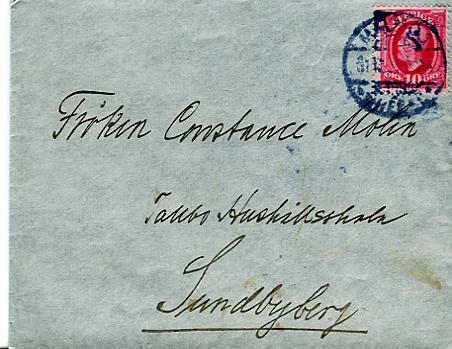 SVERIGE
ÖRE 10 ÖRE
Fröken Constance Molin
Tallbo Hushållsskola
Sundbyberg